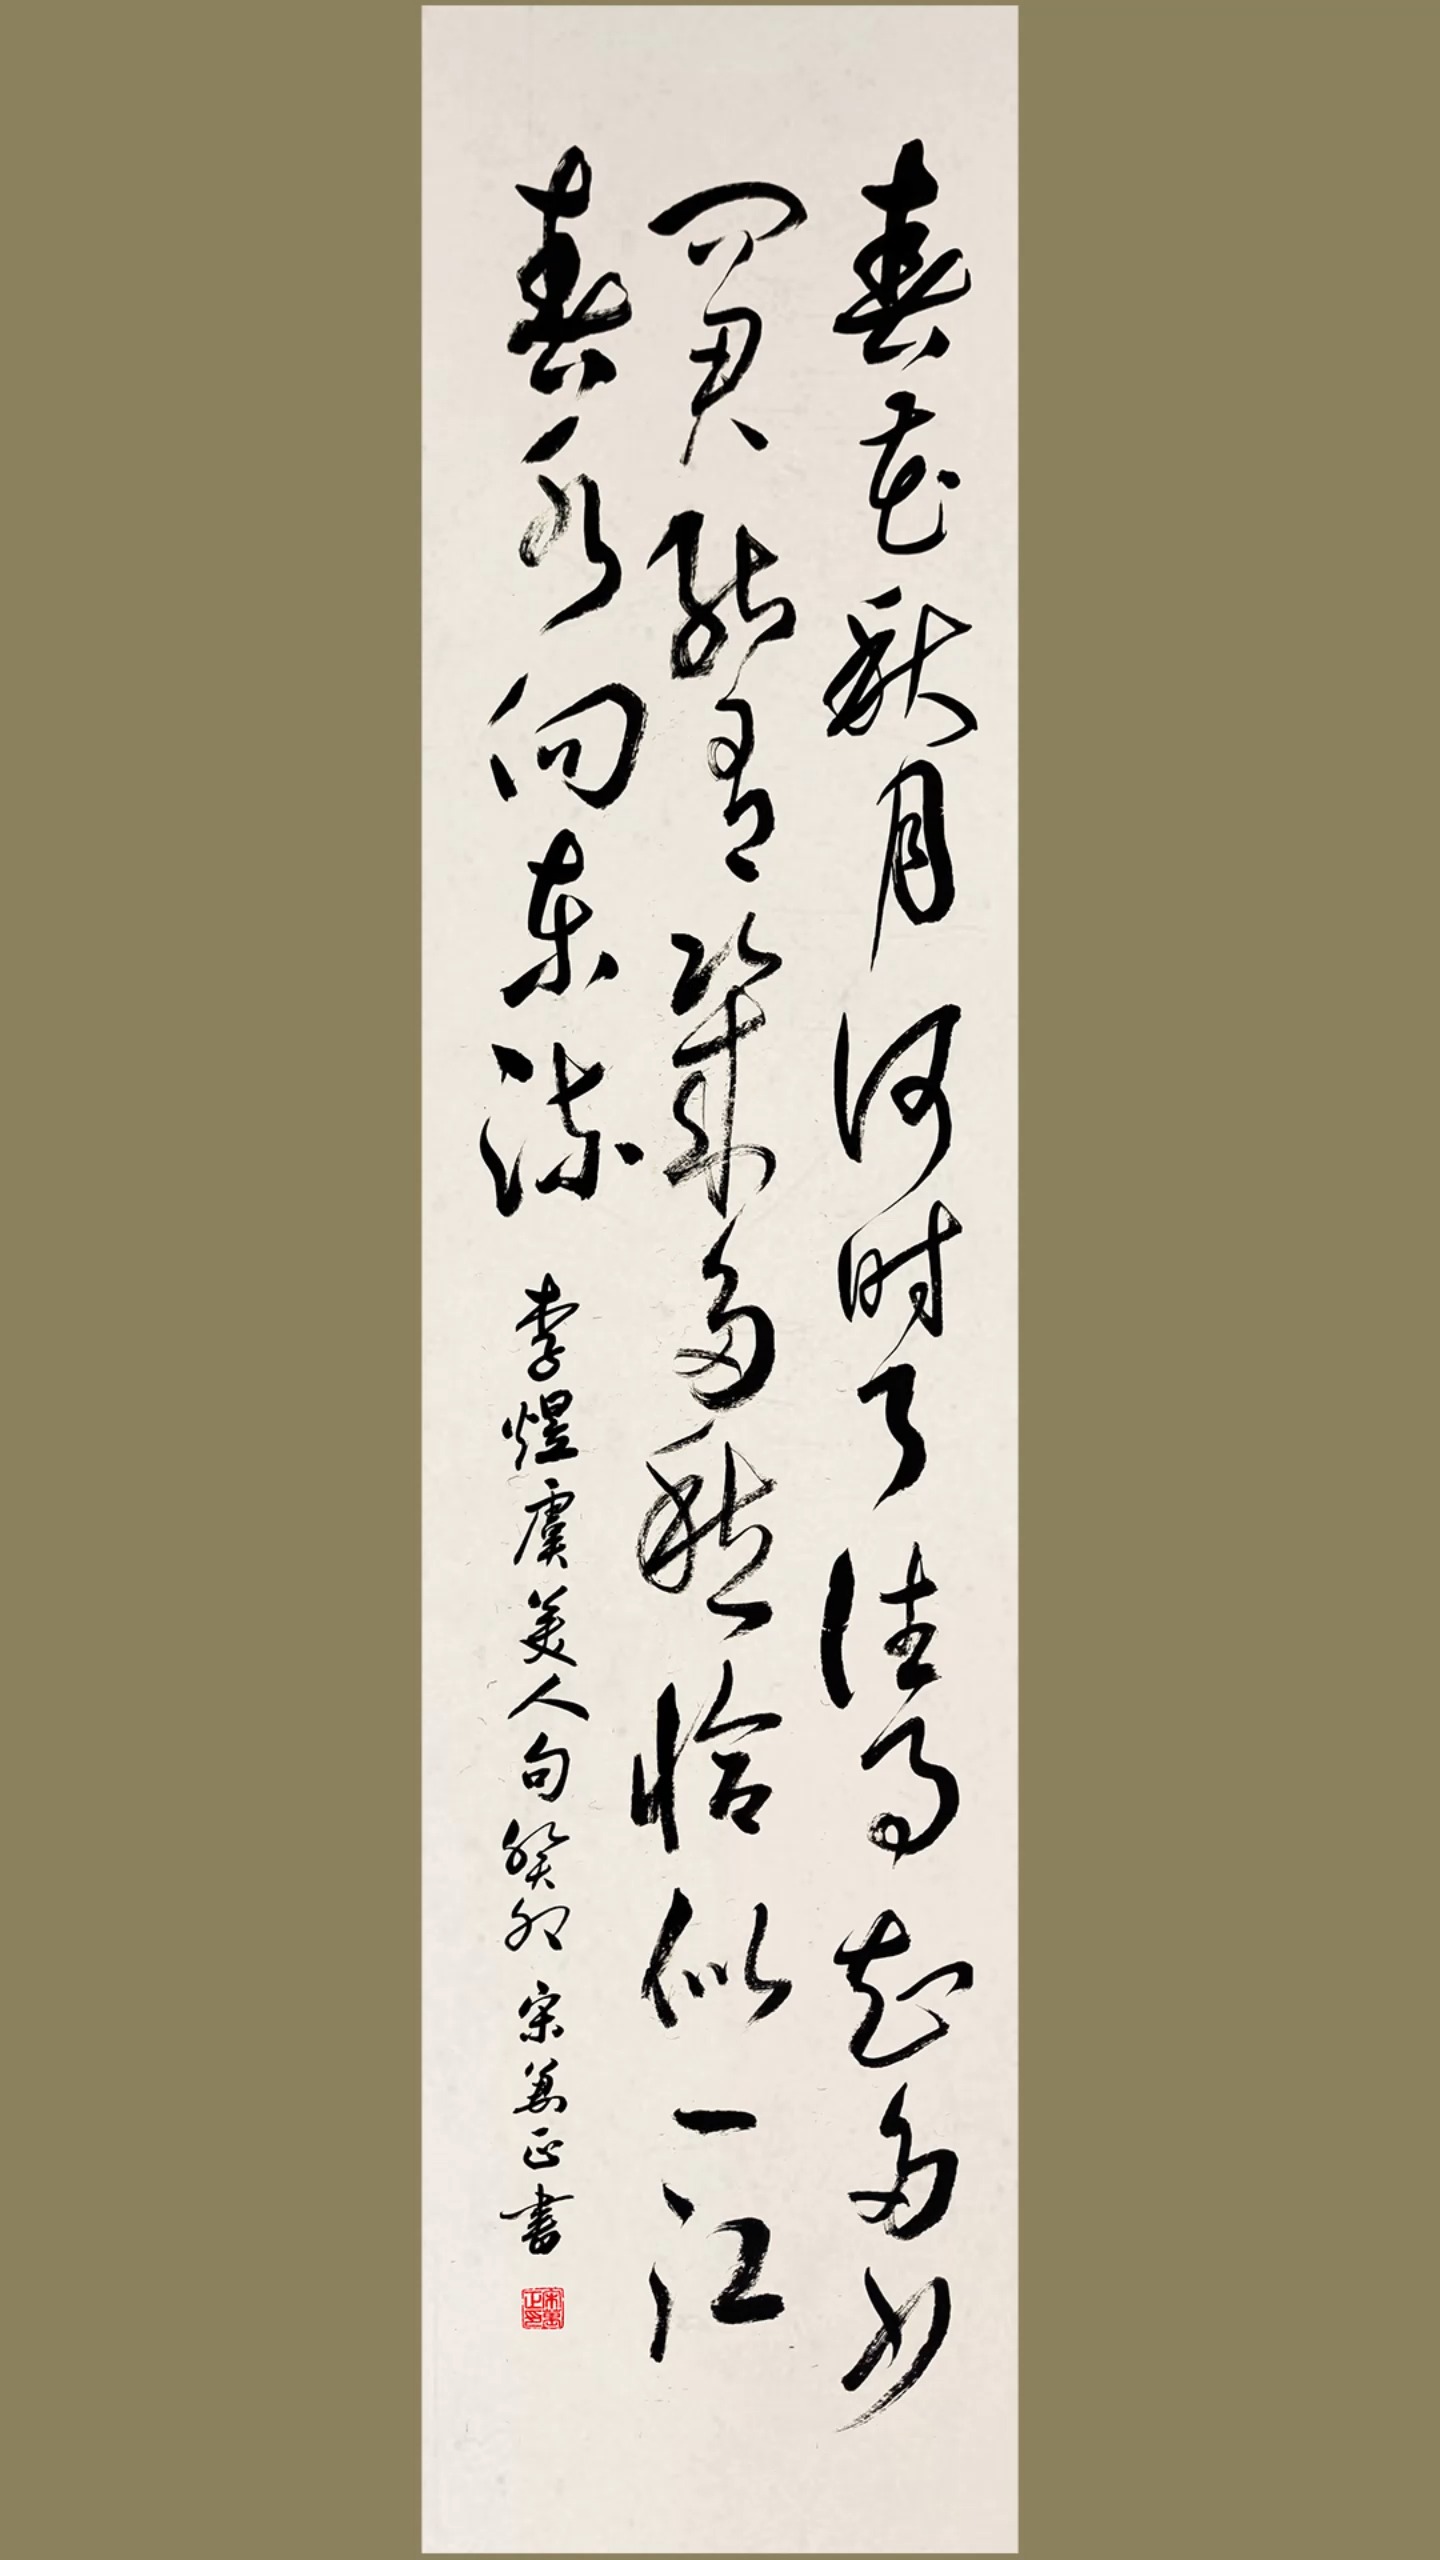 春花秋月何时了往事知多少
问君能有几多愁恰似一江
春水向东流
李煜虞美人句癸卯宋万正書
宋萬正印